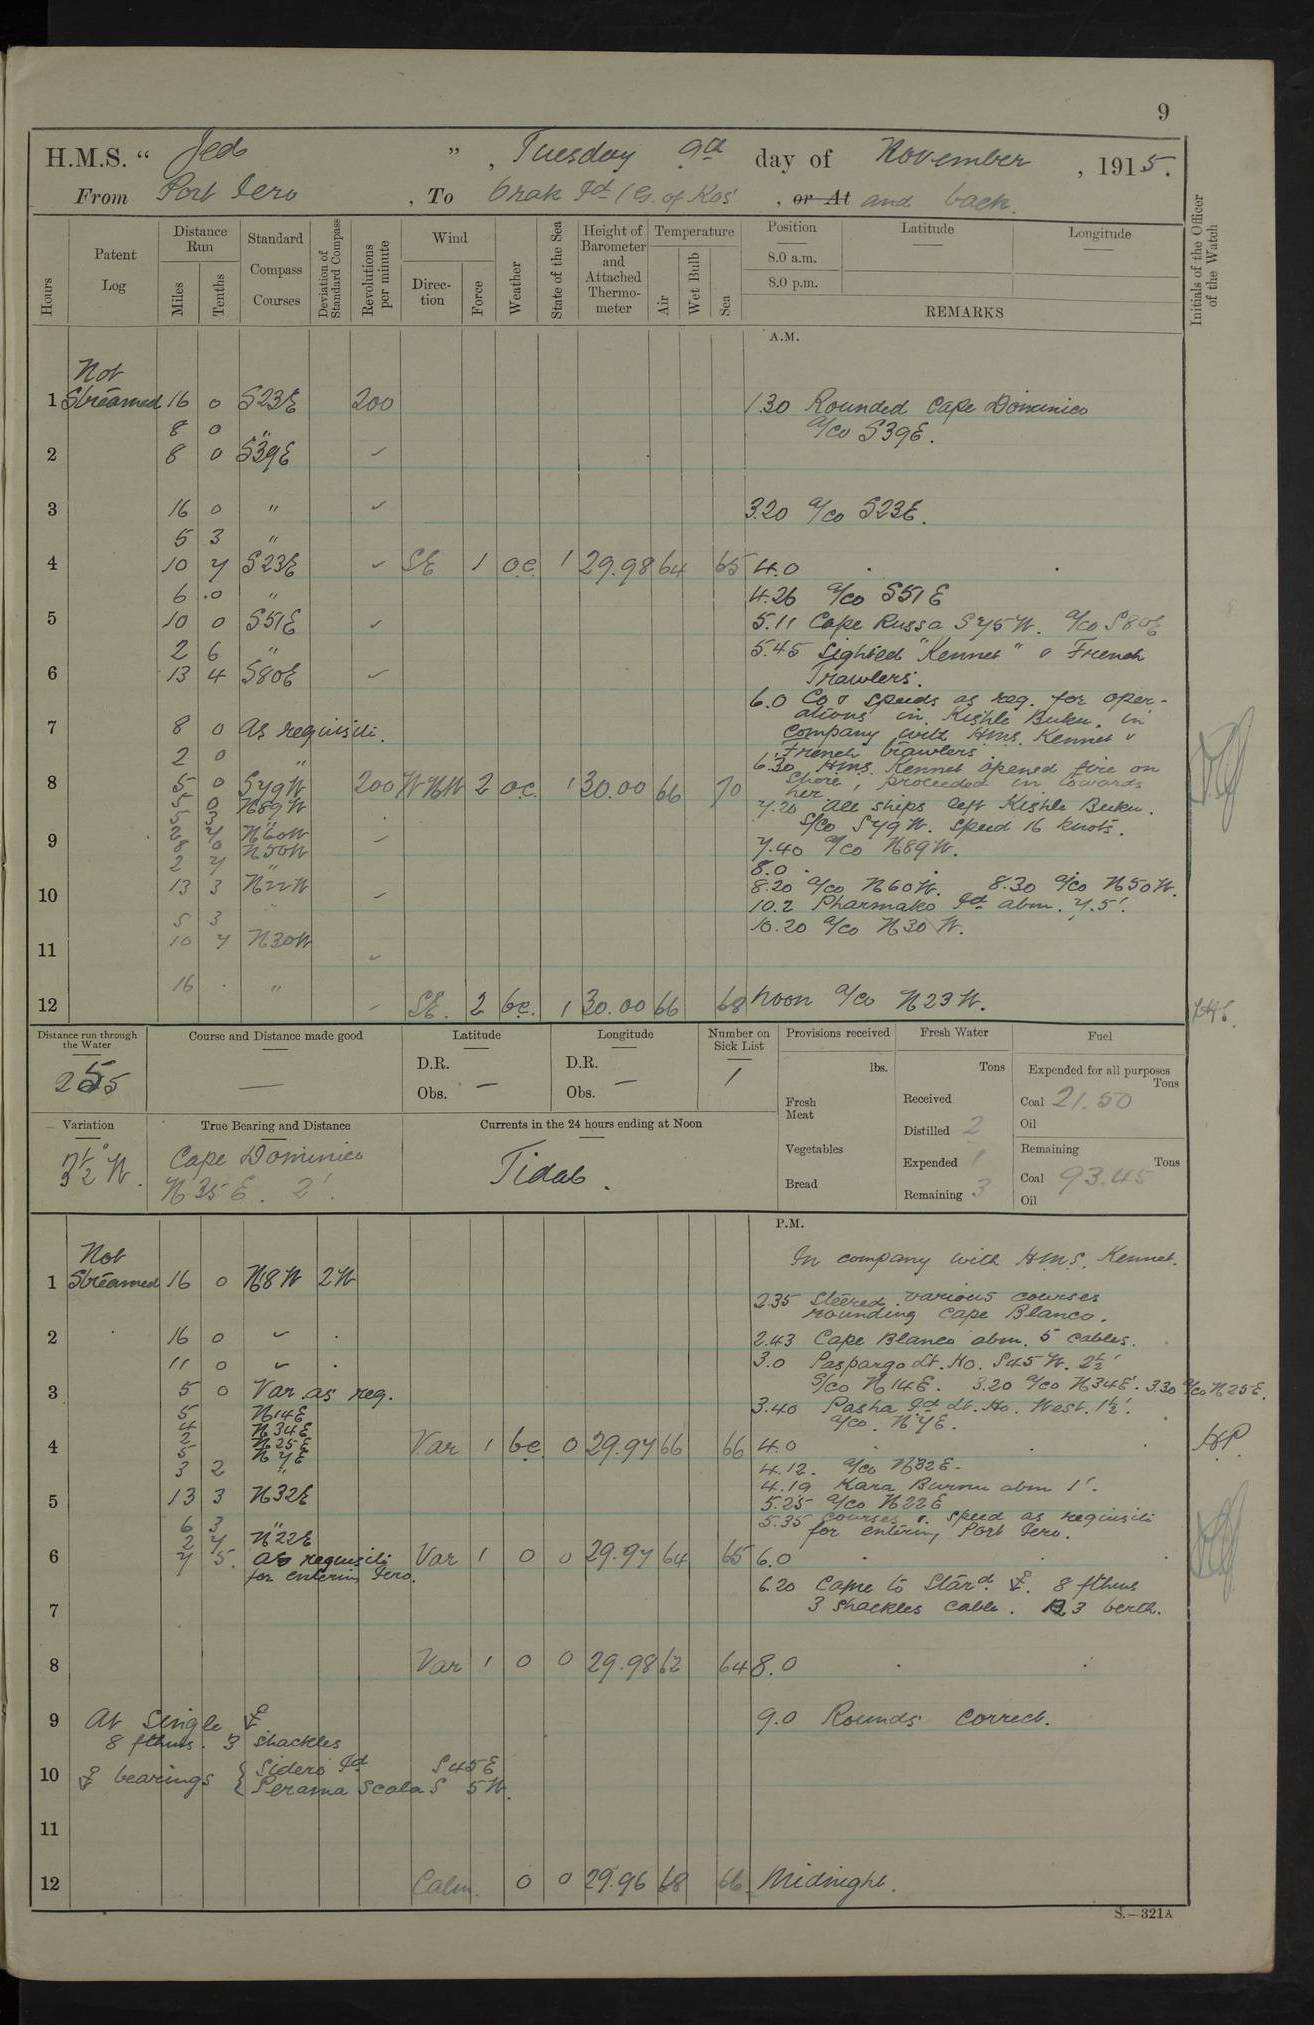 9
H.M.S. " Jed " , Tuesday 9th day of November , 1915.
From Port Iero , To Orak Id (G. of Kos) , or At and back.
Hours
Patent Log
Distance Run
Miles
Tenths
Standard Compass Courses
Deviation of Standard Compass
Revolutions per minute
Wind
Direction
Force
Weather
State of the Sea
Height of Barometer and Attached Thermometer
Temperature
Air
Wet Bulb
Sea
Position
Latitude
Longitude
8.0 a.m.
8.0 p.m.
REMARKS
Initials of the Officer of the Watch
A.M.
Not
1 Streamed 16 0 S23E 200 1.30 Rounded Cape Dominico
8 0 " a/co S39E.
2 8 0 S39E ✓
3 16 0 " ✓ 3.20 a/co S23E.
5 3 "
4 10 7 S23E ✓ SE 1 o.c. 1 29.98 64 65 4.0
6 .0 " 4.26 a/co S51E
5 10 0 S51E ✓ 5.11 Cape Russa S75W. a/co S80E
2 6 " 5.45 Sighted "Kennet" & French
6 13 4 S80E ✓ Trawlers.
6.0 Co & speeds as req. for oper-
ations in Kishle Buku. in
7 8 0 As requisite. company with HMS. Kennet &
2 0 " French trawlers.
6.30 HMS. Kennet opened fire on
8 5 0 S79W 200 WNW 2 o.c. 1 30.00 66 70 Shore, proceeded in towards
her
5 3 N89W 7.20 All ships left Kishle Buku.
S/Co S79W. Speed 16 knots.
9 N60W ✓
8 0 N50W 7.40 a/co N89W.
2 7 " 8.0
10 13 3 N22W ✓ 8.20 a/co N60W. 8.30 a/co N50W.
10.2 Pharmako Id abm. 7.5'.
5 3 " 10.20 a/co N30W.
11 10 7 N30W ✓
12 16 . " ✓ SE. 2 b.c. 1 30.00 66 68 Noon a/co N23W.
Distance run through the Water
255
Course and Distance made good
—
Latitude
D.R.
Obs. —
Longitude
D.R.
Obs. —
Number on Sick List
1
Provisions received
lbs.
Fresh Meat
Vegetables
Bread
Fresh Water
Tons
Received
Distilled 2
Expended 1
Remaining 3
Fuel
Expended for all purposes
Tons
Coal 21.50
Oil
Remaining
Tons
Coal 93.45
Oil
Variation
3½° W.
True Bearing and Distance
Cape Dominico
N35E. 2'.
Currents in the 24 hours ending at Noon
Tidal.
P.M.
Not In company with HMS. Kennet.
1 Streamed 16 0 N18W 2W
2.35 Steered various courses
rounding Cape Blanco.
2 16 0 ✓ . 2.43 Cape Blanco abm. 5 cables.
11 0 ✓ . 3.0 Paspargo Lt. Ho. S45W. 2½'
3 5 0 Var. as req. S/co N14E. 3.20 a/co N34E. 3.30 a/co N25E.
5 N14E 3.40 Pasha Id Lt. Ho. West. 1½'.
4 N34E a/co. N7E.
2 N25E
4 5 N7E Var 1 b.c. 0 29.97 66 66 4.0
3 2 " 4.12. a/co N32E.
4.19 Kara Burnu abm 1'.
5 13 3 N32E 5.25 a/co N22E
6 3 " 5.35 Courses & speed as requisite
2 7 N22E for entering Port Iero.
6 7 5. as requisite Var 1 0 0 29.97 64 65 6.0
for entering Iero.
6.20 Came to Starᵈ ⚓. 8 fthms
7 3 shackles cable. 3 berth.
8 Var 1 0 0 29.98 62 64 8.0
9 At single ⚓ 9.0 Rounds correct.
8 fthms. 3 shackles
10 ⚓ bearings { Sidero Id S45E
{ Perama Scala S 5W.
11
12 Calm. 0 0 29.96 68 66 Midnight.
S.—321A